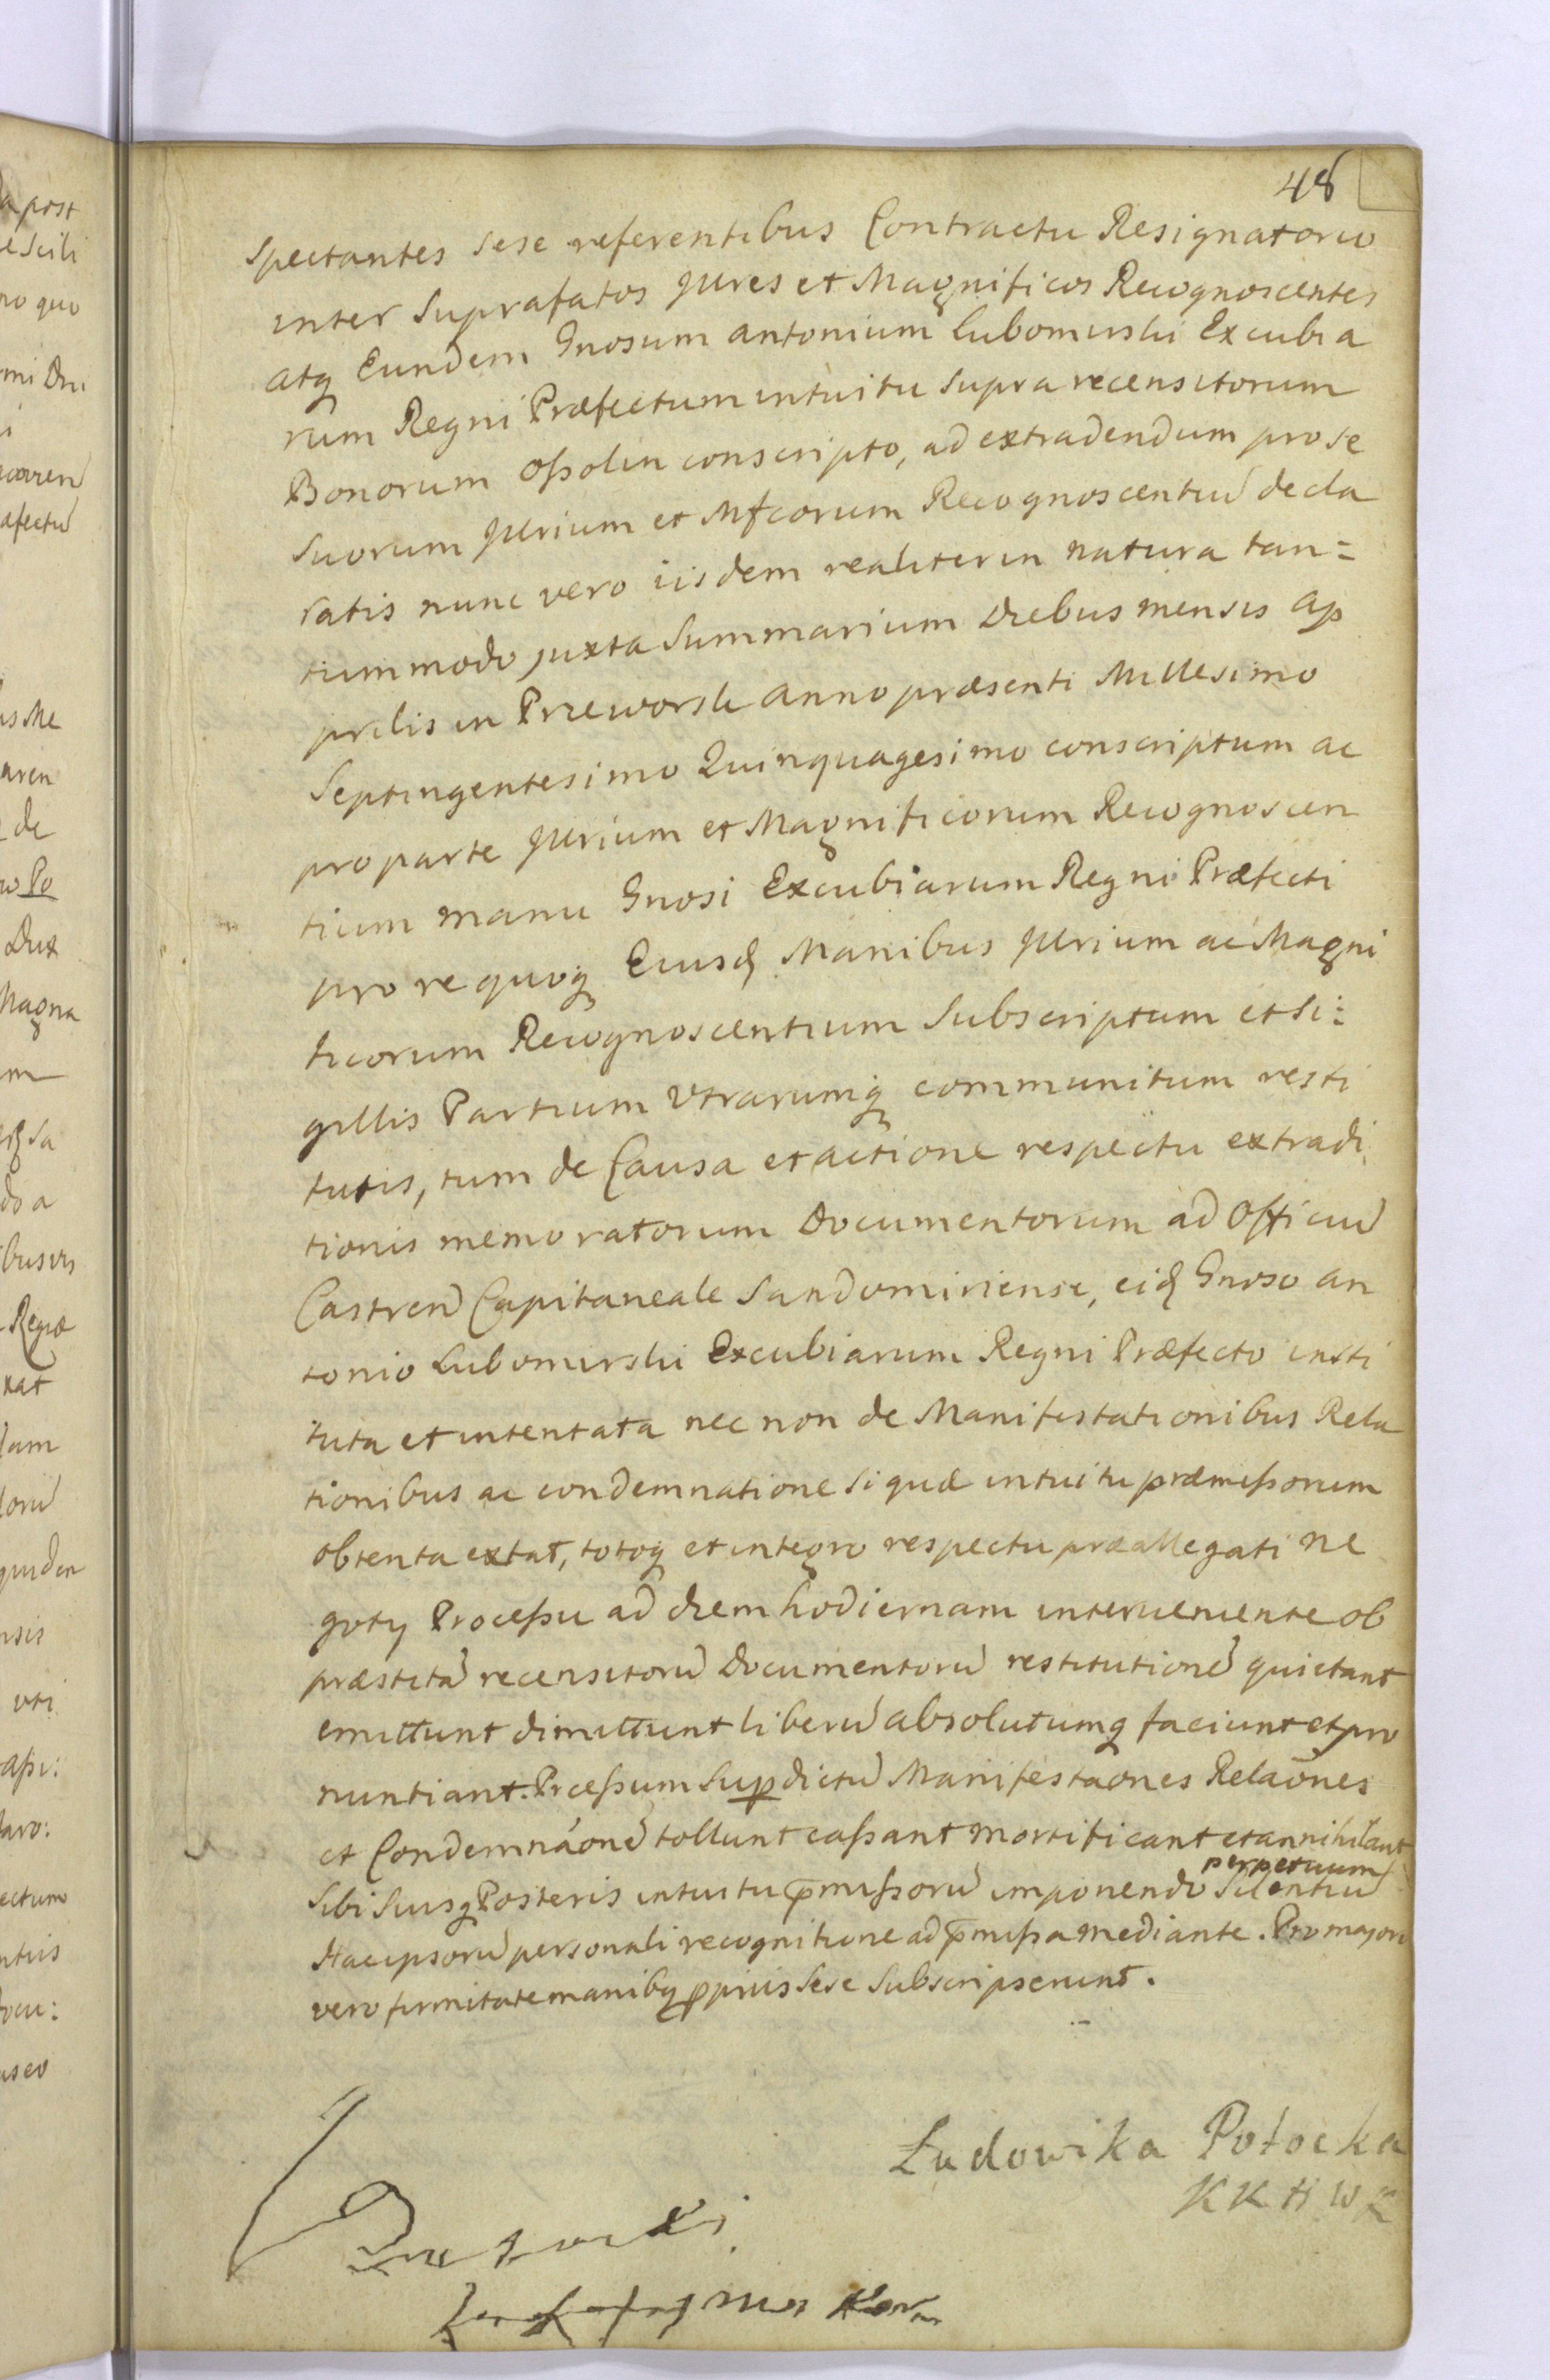 48
Spectantes sese referentibus Contractu Resignatorio
inter Suprafatos Illres et Magnificos Recognoscentes
atq Eundem Gnosum Antonium Lubomirski Excubia
rum Regni Præfectum intuitu supra recensitorum
Bonorum Ossolin conscripto, ad extradendum pro se
Suorum Illrium et Mfcorum Recognoscentiu decla
ratis nunc vero iisdem realiter in natura tan=
tummodo juxta Summarium Diebus mensis Ap
prilis in Przeworsk Anno præsenti Millesimo
Septingentesimo Quinquagesimo conscriptum ac
pro parte Illrium et Magnificorum Recognoscen
tium manu Gnosi Excubiarum Regni Præfecti
pro re quoq Eiusd Manibus Illrium ac Magni
ficorum Recognoscentium Subscriptum et Si:
gillis Partium Utrarumq communitum resti
tutis, tum de Causa et actione respectu extradi
tionis memoratorum Documentorum ad Officiu
Castren Capitaneale Sandomiriense, eid Gnoso An
tonio Lubomirski Excubiarum Regni Præfecto insti
tuta et intentata nec non de Manifestationibus Rela
tionibus ac condemnatione si quæ intuitu præmissorum
obtenta extat, totoq et integro respectu præallegati ne
goty Processu ad diem hodiernam interveniente ob
præstitã recensitorũ Documentorũ restitutionẽ quietant
emittunt dimittunt liberũ absolutumq faciunt et pro
nuntiant. Prcessum Supdictũ Manifestaões Relaões
et Condemnaõnẽ tollunt cassant mortificant et annihilant
perpetuum
Sibi Suisq Posteris intuitu p̃missorũ imponendo Silentiũ
Hac ipsorũ personali recognitione ad p̃missa mediante. Pro majori
vero firmitate manibq ppriis sese Subscripserunt.
Ludowika Potocka
KKHWK